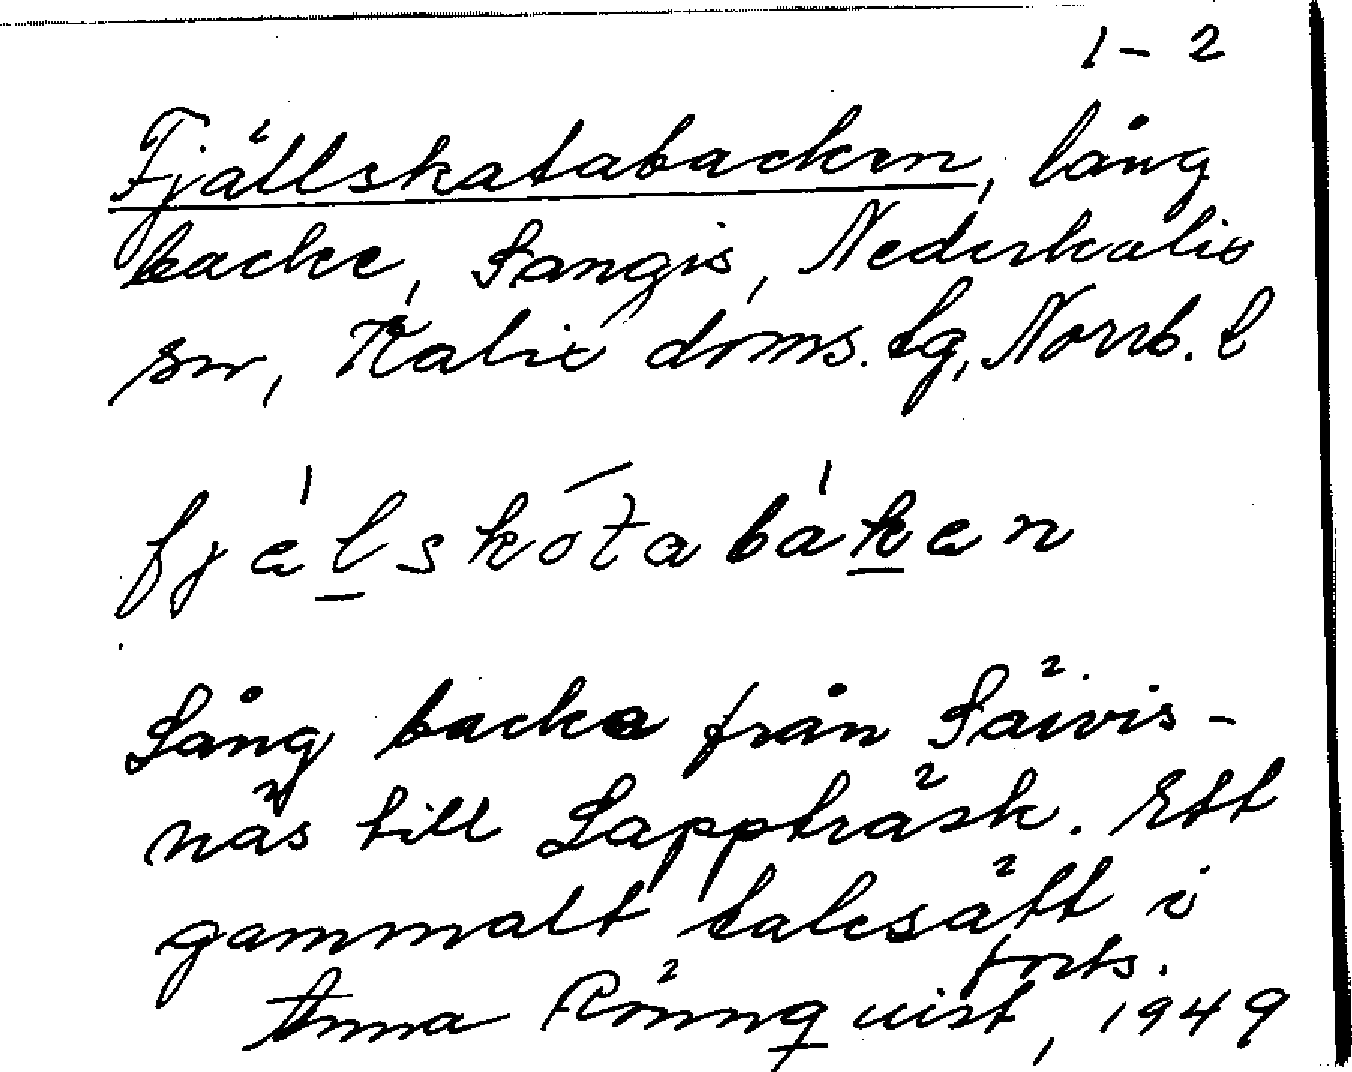 1-2
Fjällskatabacken, lång
backe, Sangis, Nederkalix
sn, Kalix doms. lg, Norrb. l
fjälskótabaken
Lång backe från Säivis-
näs till Lappträsk. Ett
gammalt talesätt i
forts.
Anna Rönnquist, 1949